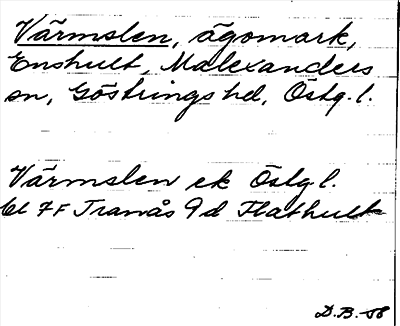 Värmslen, ägomark,
Enshult, Malexanders
sn, Göstrings hd, Östg. l.
Värmslen ek Östg l.
bl 7F Tranås 9d Flathult
D.B.-58